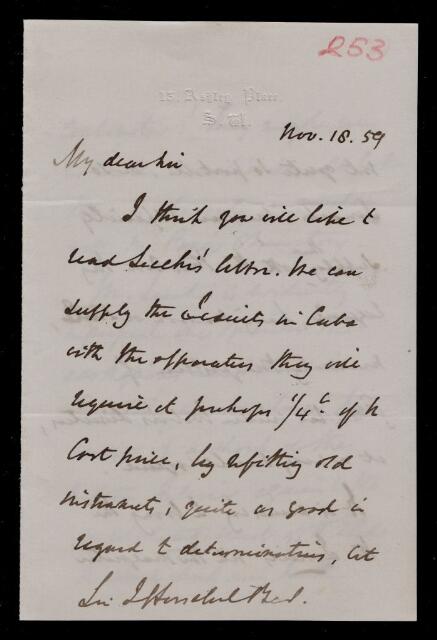 253
15, Ashley Place.
S.W.
Nov. 18. 59
My dear Sir
I think you will like t
read Secchi's letter. We can
supply the Jesuits in Cuba
with the apparatus they will
require at perhaps 1/4th of the
Cost price, by refitting old
instruments, quite as good in
regard to determinations, but
Sir J Herschel Bt.